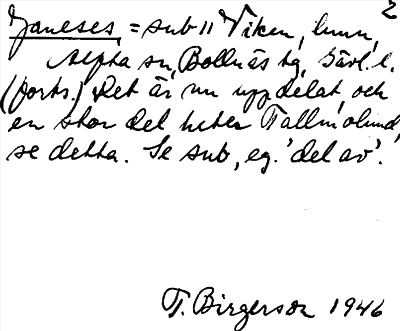 2
Janeses = sub 11 Viken, hmn,
Alfta sn, Bollnäs tg, Gävl. l.
(forts.) Det är nu uppdelat, och
en stor del heter Tallmolund,
se detta. Se sub, eg. 'del av'.
T. Birgerson 1946